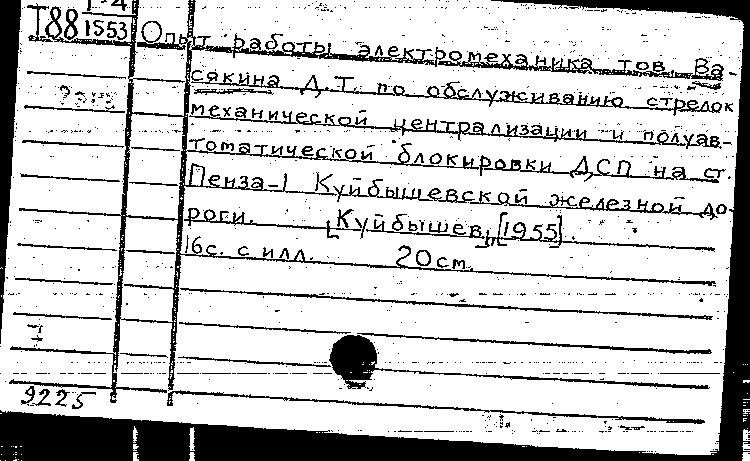 Т88 1-4
1553
Опыт работы электромеханика тов. Ва-
сякина Д.Т. по обслуживанию стрелок
механической централизации и полуав-
томатической блокировки ДСП на ст.
Пенза-1 Куйбышевской железной до-
роги. [Куйбышев, [1955].
16с. с илл. 20см.
9225